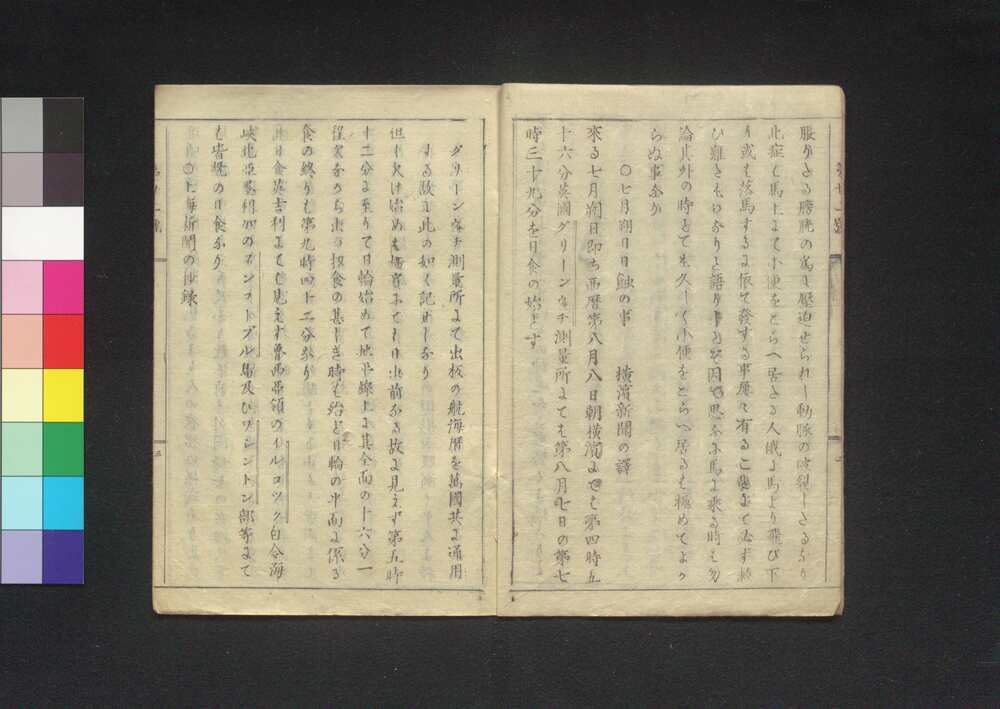 脹りたる膀胱の為に壓迫せられし動脉の破裂したるなり
此症ハ馬上にて小便をこらへ居たる人俄に馬より飛び下
り或は落馬するに依て發する事屡々有ることにて必ず救
ひ難きものなりと語りしと云因て思ふに馬に乗る時は勿
論其外の時とても久しく小便をこらへ居るは極めてよか
らぬ事なり
○七月朔日日蝕の事 横濱新聞の譯
來る七月朔日即ち西暦第八月八日朝横濱にても第四時五
十六分英國グリーンウヰチ測量所にても第八月七日の第七
時三十九分を日食の始とす
グリーンウヰチ測量所にて出板の航海暦を萬國共に通用
する故に此の如く記せしなり
但し欠け始めも横濱にてハ日出前なる故に見えず第五時
十二分に至りて日輪始めて地平線上に其全面の十六分一
程欠けながら出づ扨食の甚しき時も殆ど日輪の半面に係る
食の終りも第九時四十二分なり
此日食英吉利にても見えず魯西亜領のイルコツク白令海
峡北亜墨利加のボンストブル馬及びワシントン部等にて
も皆既の日食なり
○上海新聞の抄録